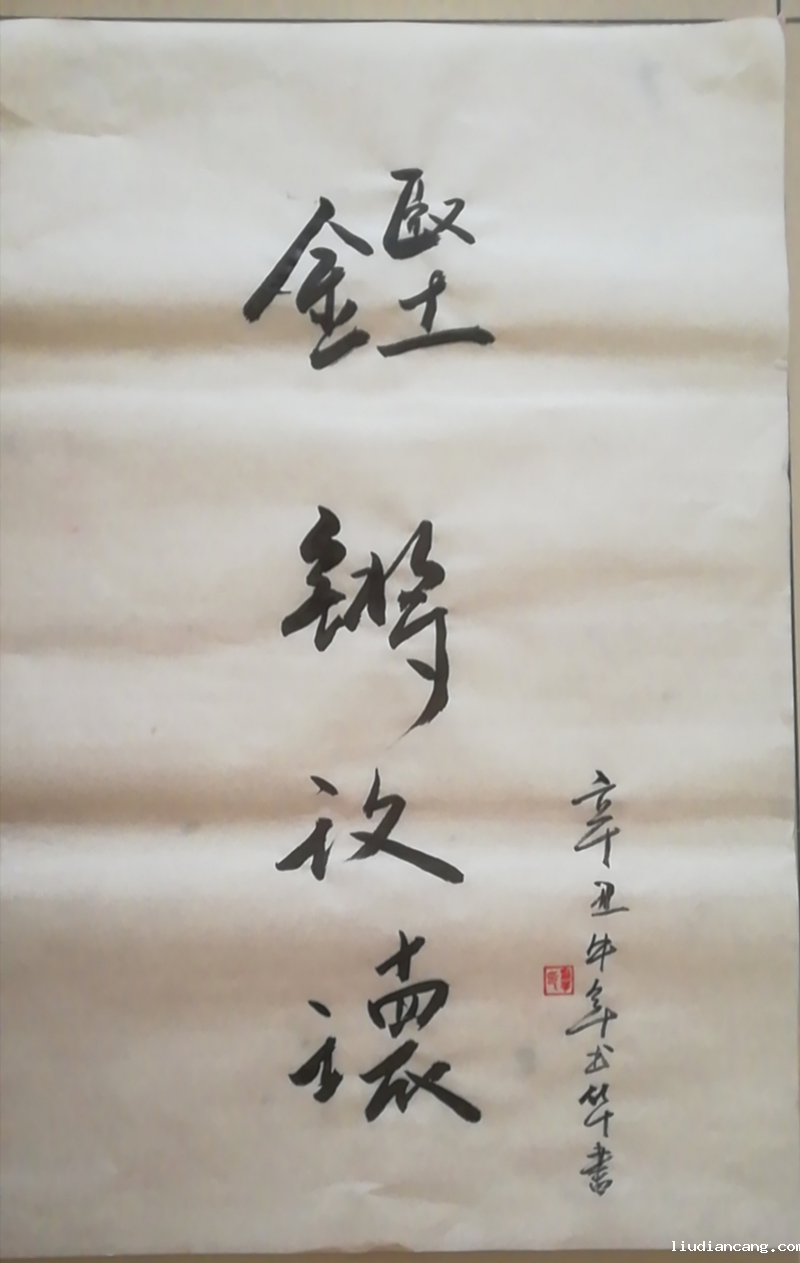 鏗鏘玫瓌
辛丑牛年华書
liudiancang.com